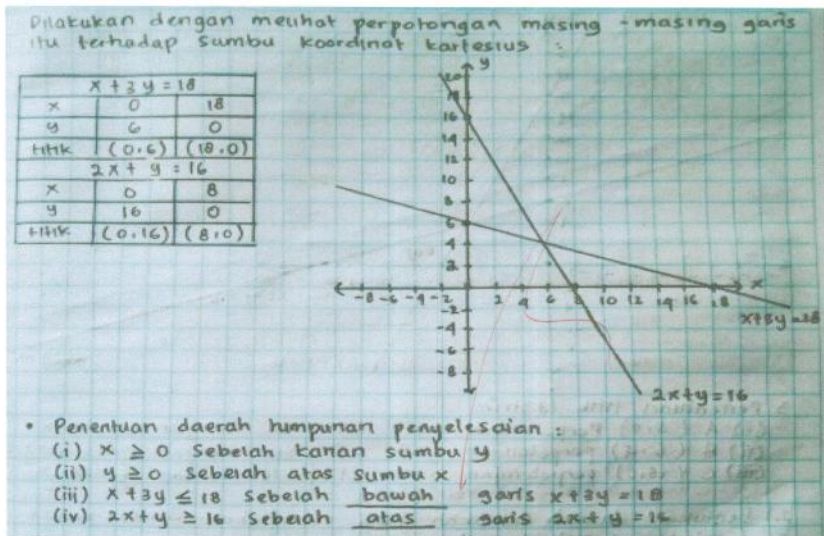 Dilakukan dengan melihat perpotongan masing - masing garis
itu terhadap sumbu koordinat kartesius :
x + 3y = 18
x 0 18
y 6 0
titik (0.6) (18.0)
2x + y = 16
x 0 8
y 16 0
titik (0.16) (8.0)
y
20
18
16
14
12
10
8
6
4
2
-8 -6 -4 -2 2 4 6 8 10 12 14 16 18 x
-2
-4
-6
-8
x+3y=18
2x+y=16
• Penentuan daerah himpunan penyelesaian :
(i) x ≥ 0 Sebelah kanan sumbu y
(ii) y ≥ 0 Sebelah atas sumbu x
(iii) x + 3y ≤ 18 Sebelah bawah garis x + 3y = 18
(iv) 2x + y ≥ 16 Sebelah atas garis 2x + y = 16